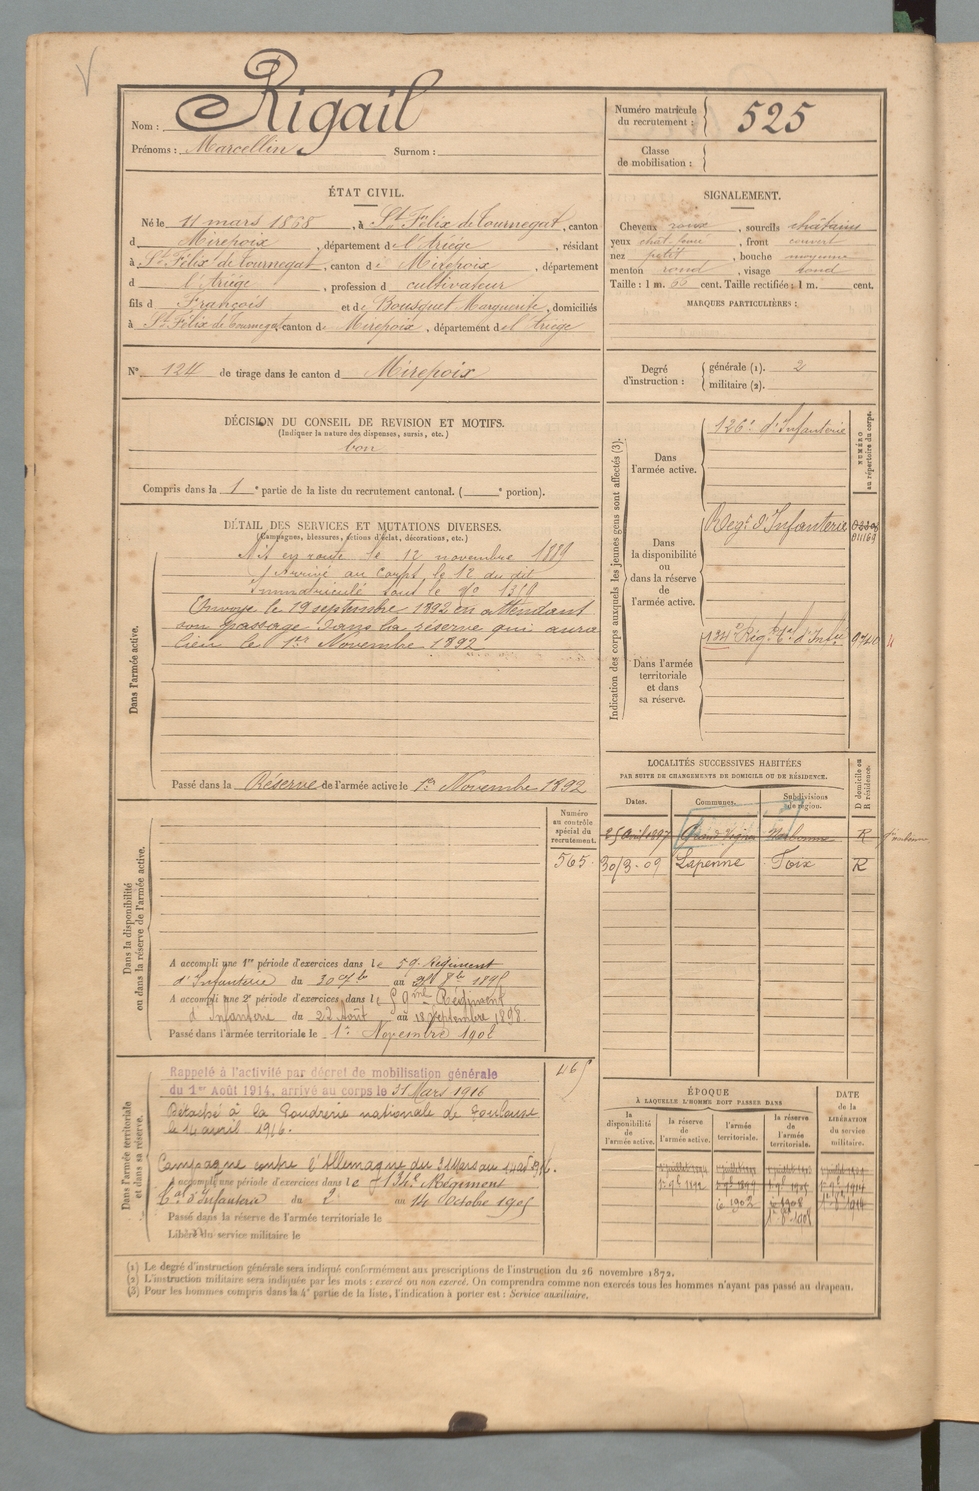 Rigail
Nom :
Prénoms : Marcellin Surnom :
Numéro matricule du recrutement : 525
Classe de mobilisation :
ÉTAT CIVIL.
Né le 11 mars 1868, à St Félix de Tournegat, canton
d Mirepoix, département de l'Ariège, résidant
à St Félix de Tournegat, canton de Mirepoix, département
d l'Ariège, profession d cultivateur
fils d François et de Bousquet Marguerite, domiciliés
à St Félix de Tournegat canton de Mirepoix, département de l'Ariège
SIGNALEMENT.
Cheveux roux, sourcils châtains
yeux chât. , front couvert
nez petit, bouche moyenne
menton rond, visage rond
Taille : 1 m. 65 cent. Taille rectifiée : 1 m. cent.
MARQUES PARTICULIÈRES :
N° 124 de tirage dans le canton d Mirepoix
Degré d'instruction : générale (1). 2
militaire (2).
DÉCISION DU CONSEIL DE REVISION ET MOTIFS.
(Indiquer la nature des dispenses, sursis, etc.)
bon
Compris dans la 1 e partie de la liste du recrutement cantonal. ( e portion).
DÉTAIL DES SERVICES ET MUTATIONS DIVERSES.
(Campagnes, blessures, actions d'éclat, décorations, etc.)
Dans l'armée active.
Mis en route le 12 novembre 1889
Arrivé au Corps le 12 du dit
Immatriculé sous le N°
Envoyé le 19 septembre 1892 en attendant
son passage dans la réserve qui aura
lieu le 1er Novembre 1892
Passé dans la Réserve de l'armée active le 1er Novembre 1892
Indication des corps auxquels les jeunes gens sont affectés (3).
NUMÉRO au répertoire du corps.
Dans l'armée active.
126e d'Infanterie
Dans la disponibilité ou dans la réserve de l'armée active.
Régt d'Infanterie
Dans l'armée territoriale et dans sa réserve.
134e Rég. Tal d'Infie
LOCALITÉS SUCCESSIVES HABITÉES
PAR SUITE DE CHANGEMENTS DE DOMICILE OU DE RÉSIDENCE.
Dates. Communes. Subdivisions de région. D domicile ou R résidence.
25 Avril 1897 Narbonne R
30/3-09 Lapenne Foix R
Dans la disponibilité ou dans la réserve de l'armée active.
Numéro au contrôle spécial du recrutement.
565
A accompli une 1re période d'exercices dans le 59e Régiment
d'Infanterie du 30 7bre au 8bre 1895
A accompli une 2e période d'exercices dans le 59me Régiment
d'Infanterie du 22 Août au 18 Septembre 1898.
Passé dans l'armée territoriale le 1er Novembre 1902
Dans l'armée territoriale et dans sa réserve.
Rappelé à l'activité par décret de mobilisation générale
du 1er Août 1914, arrivé au corps le 31 Mars 1916
Détaché à la Poudrerie nationale de Toulouse
le 14 avril 1916.
Campagne contre l'Allemagne du 31 Mars au 14
accompli une période d'exercices dans le Régiment
Tal d'Infanterie du 2 au 14 Octobre 1905
Passé dans la réserve de l'armée territoriale le
Libéré du service militaire le
ÉPOQUE
À LAQUELLE L'HOMME DOIT PASSER DANS
la disponibilité de l'armée active. la réserve de l'armée active. l'armée territoriale. la réserve de l'armée territoriale. DATE de la LIBÉRATION du service militaire.
(1) Le degré d'instruction générale sera indiqué conformément aux prescriptions de l'instruction du 26 novembre 1872.
(2) L'instruction militaire sera indiquée par les mots : exercé ou non exercé. On comprendra comme non exercés tous les hommes n'ayant pas passé au drapeau.
(3) Pour les hommes compris dans la 4e partie de la liste, l'indication à porter est : Service auxiliaire.